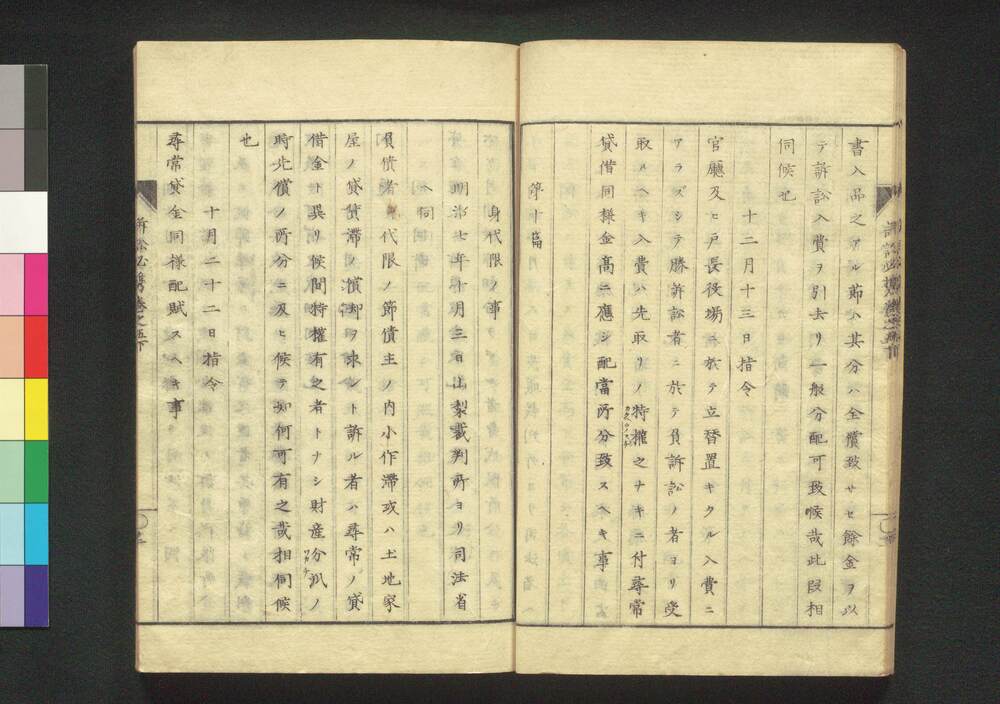 書入品之アル節ハ其分ハ全償致サセ餘金ヲ以
テ訴訟入費ヲ引去リ一般分配可致候哉此段相
伺候也
十二月十三日指令
官廳及ヒ戸長役場ニ於テ立替置キタル入費ニ
アラズシテ勝訴訟者ニ於テ負訴訟ノ者ヨリ受
取ルヘキ入費ハ先取リノ特權之ナキニ付尋常
貸借同様金高ニ應シ配當所分致スヘキ事
第十篇
身代限ノ事
明治七年十月三日山梨裁判所ヨリ司法省
ヘ伺
負債者身代限ノ節債主ノ内小作滞或ハ土地家
屋ノ貸賃滞ノ償却ヲ求シト訴ル者ハ尋常ノ貸
借金ト異リ候間特權有之者トナシ財産分派ノ
時先償ノ所分ニ及ヒ候テ如何可有之哉相伺候
也
十月二十二日指令
尋常貸金同様配賦スヘキ事
訴訟必携巻之五下